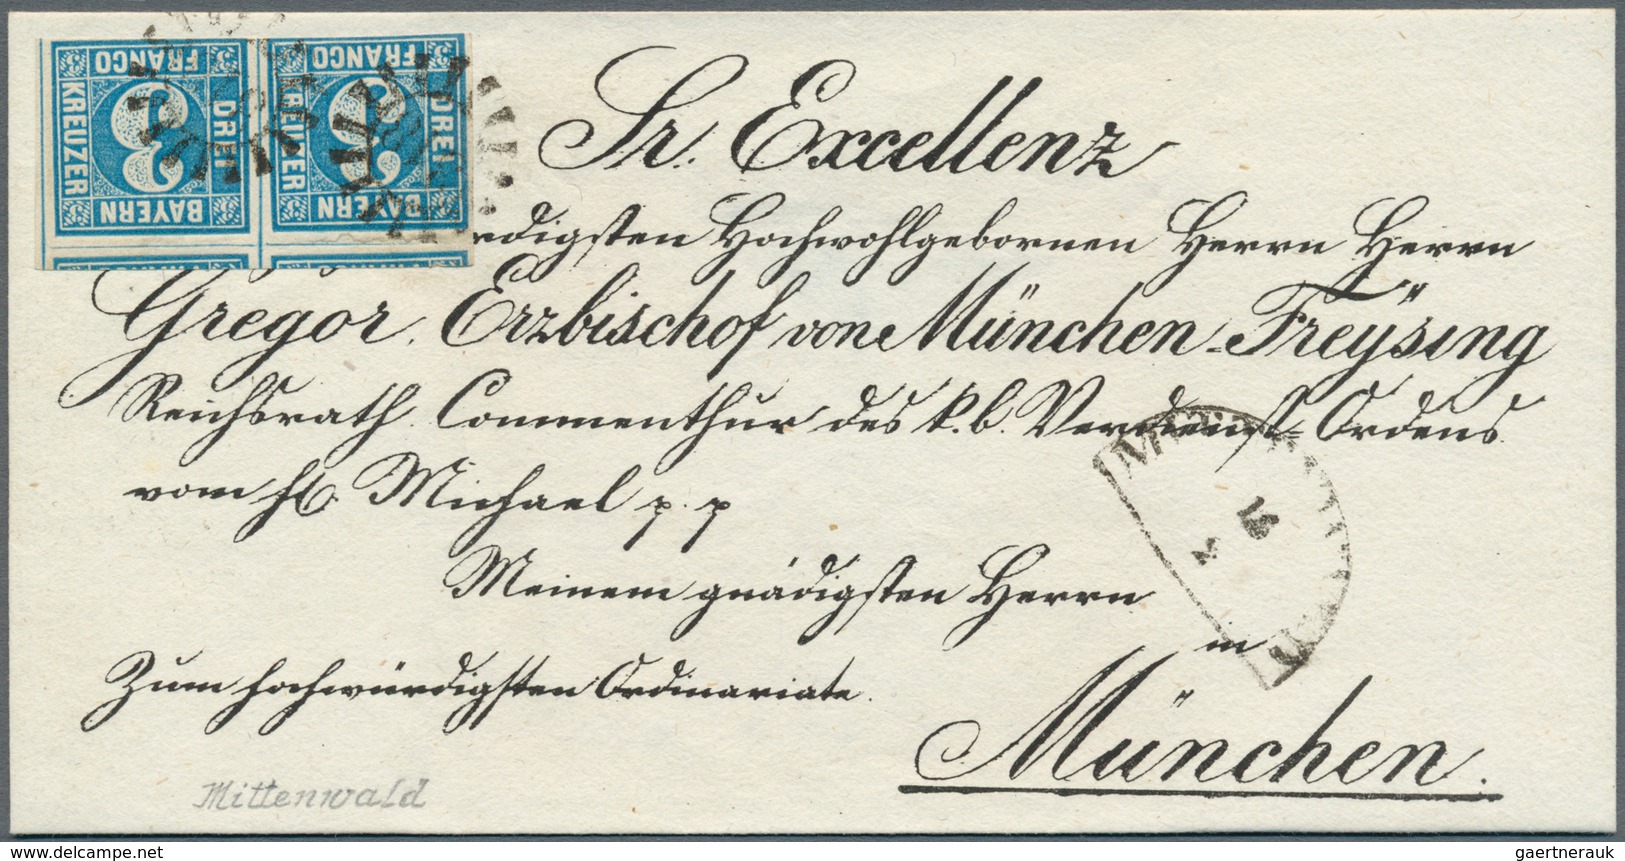 FRANCO FRANCO
KREUZER DREI KREUZER DREI
3 3 3 3
BAYERN BAYERN
Sr. Excellenz
rdigsten Hochwohlgebornen Herrn Herrn
Gregor, Erzbischof von München-Freÿsing
Reichsrath Commenthur des k. b. Verdienst-Ordens
vom hl. Michael p. p
Meinem gnädigsten Herrn
in
Zum hochwürdigsten Ordinariate.
München.
Mittenwald
delcampe.net
gaertnerauk